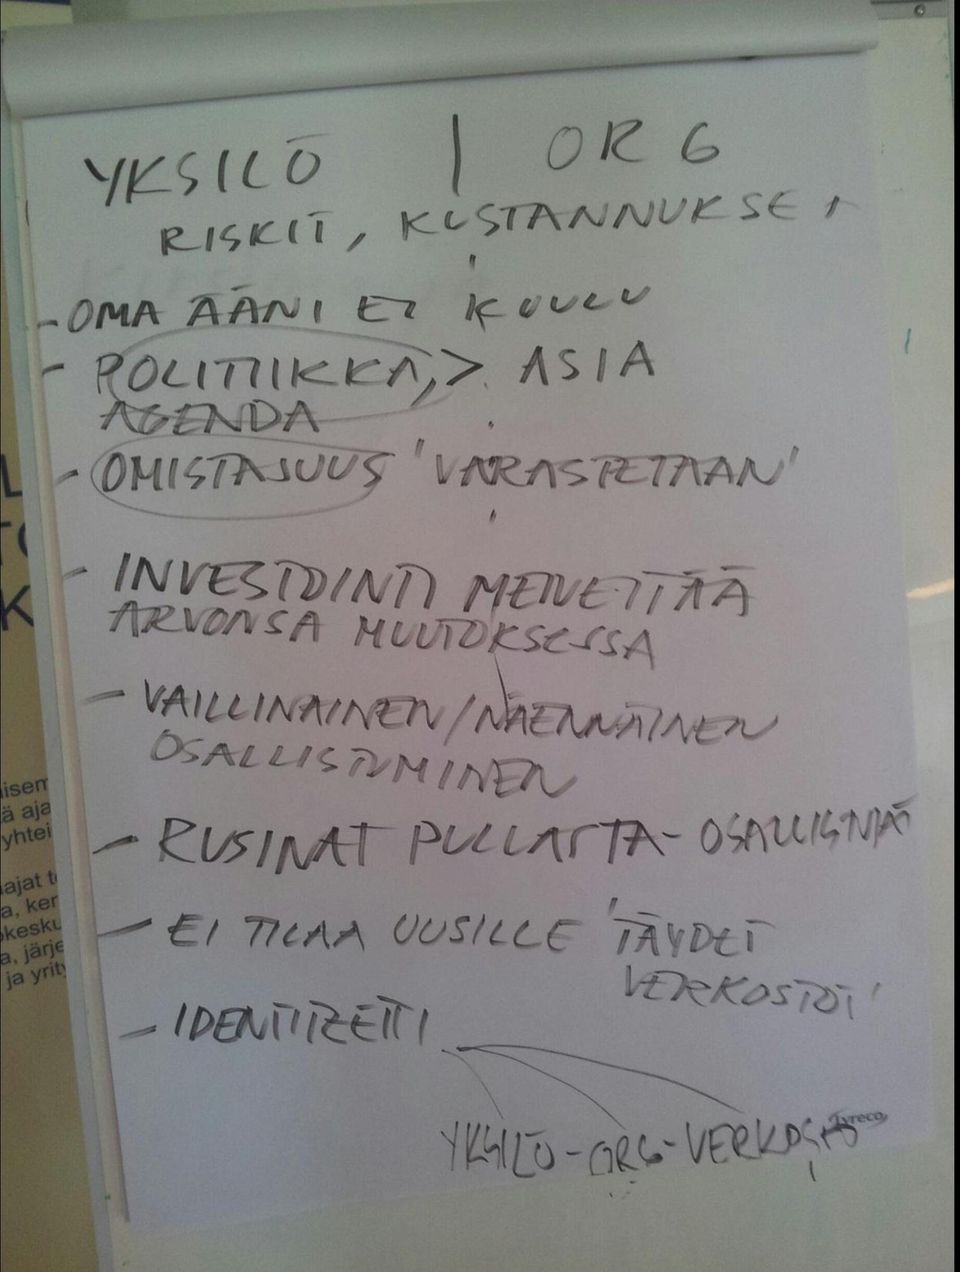 YKSILÖ | ORG
RISKIT, KUSTANNUKSET
- OMA ÄÄNI EI KUULU
- POLITIIKKA, > ASIA
AGENDA
- OMISTAJUUS 'VARASTETAAN'
- INVESTOINTI MENETTÄÄ
ARVONSA MUUTOKSESSA
- VAILLINAINEN/NÄENNÄINEN
OSALLISTUMINEN
- RUSINAT PULLASTA- OSALLISTUJAT
- EI TILAA UUSILLE 'TÄYDET
VERKOSTOT'
- IDENTITEETTI
YKSILÖ-ORG-VERKOSTO
L
TO
K
isem
ä aja
yhtei
aajat t
a, ker
okesku
a, järje
ja yrity